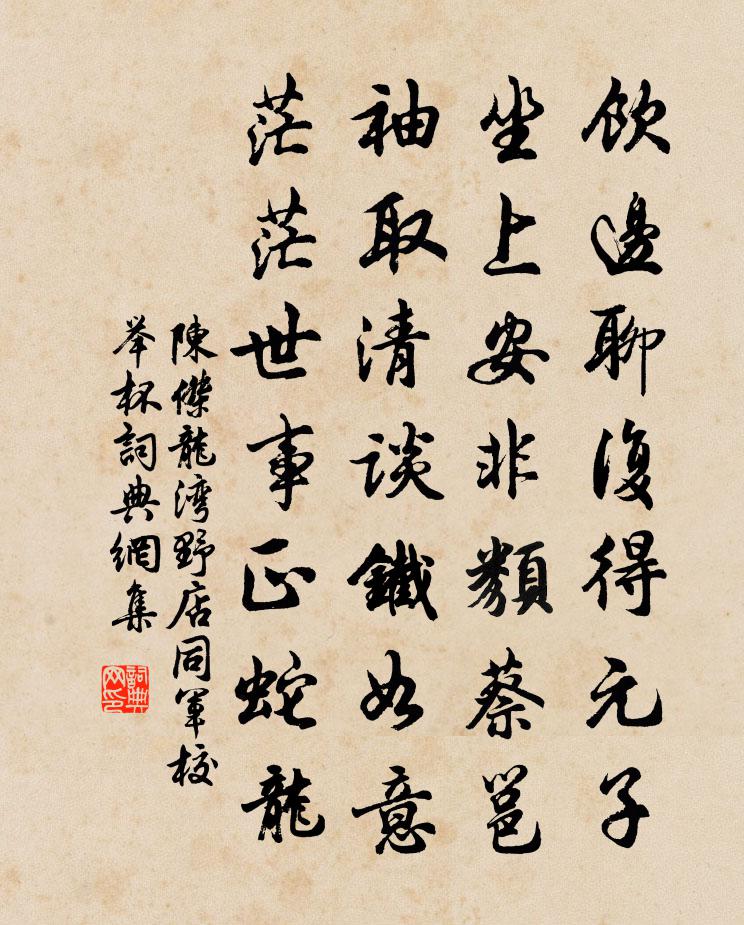 飲邊聊復得元子
坐上安非類蔡邕
袖取清談鐵如意
茫茫世事正蛇龍
陳傑龍湾野店同軍校
举杯詞典網集
詞典
网印